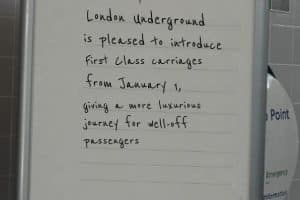 London Underground
is pleased to introduce
First Class carriages
from January 1,
giving a more luxurious
journey for well-off
passengers
Point
Emergency
Information